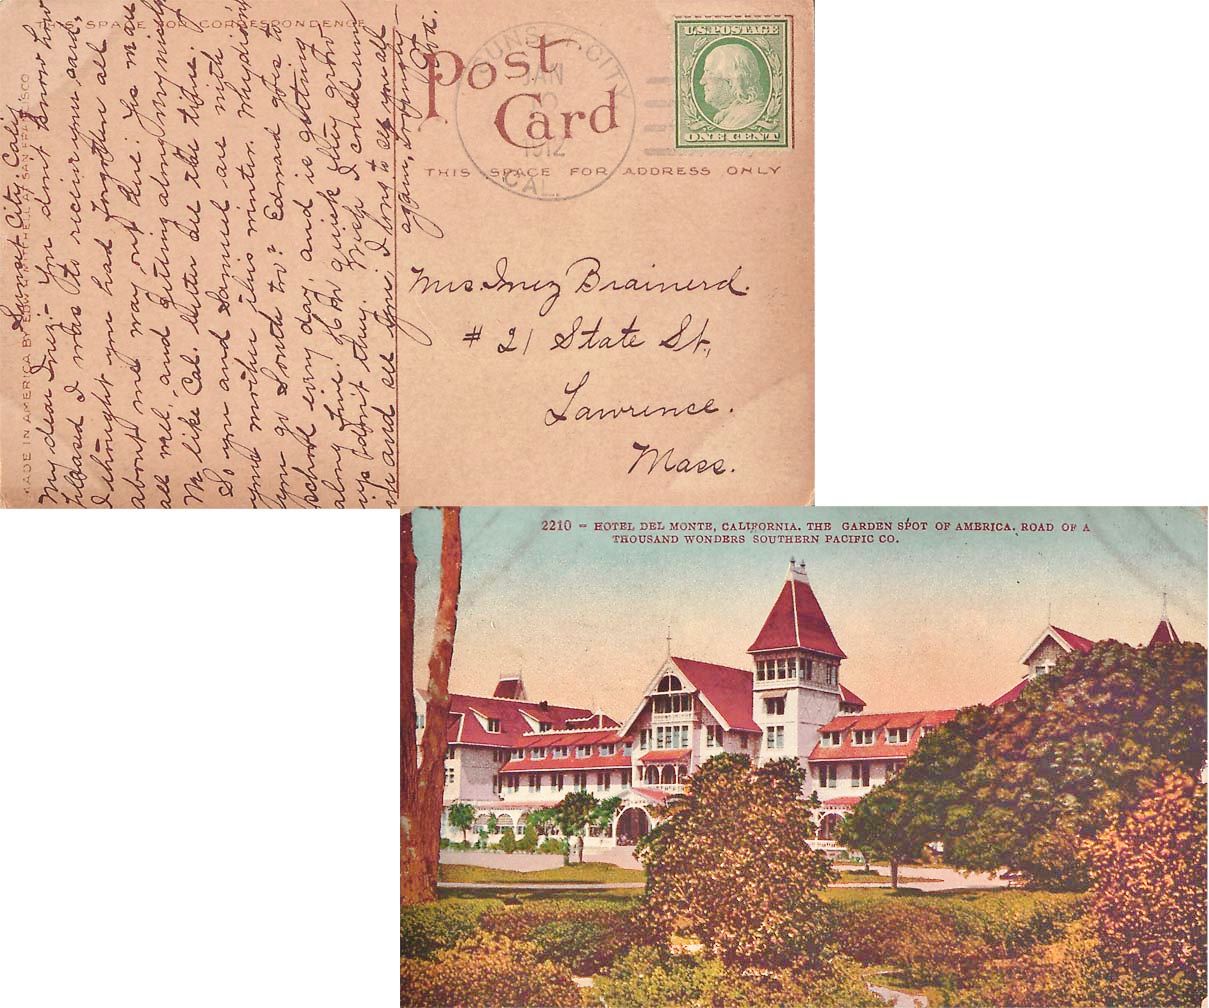 THIS SPACE FOR CORRESPONDENCE
MADE IN AMERICA BY EDW. H. MITCHELL, SAN FRANCISCO
Sunset City, Calif.
My dear Inez:- You don't know how
pleased I was to receive your card,
I thought you had forgotten all
about me way out here. Yes am
all well, and getting along nicely
We like Cal. better all the time.
So you and Samuel are with
your mother this winter. Why didn't
you go South too? Edward goes to
school every day, and is getting
along fine. How quick they grow
up don't they. Wish I could run
in and see you. I long to see you all
again,
Post
Card
SUNSET CITY
JAN
10
1912
CAL.
U.S. POSTAGE
ONE CENT
THIS SPACE FOR ADDRESS ONLY
Mrs. Inez Brainerd.
# 21 State St.,
Lawrence.
Mass.
2210 - HOTEL DEL MONTE, CALIFORNIA. THE GARDEN SPOT OF AMERICA. ROAD OF A
THOUSAND WONDERS SOUTHERN PACIFIC CO.